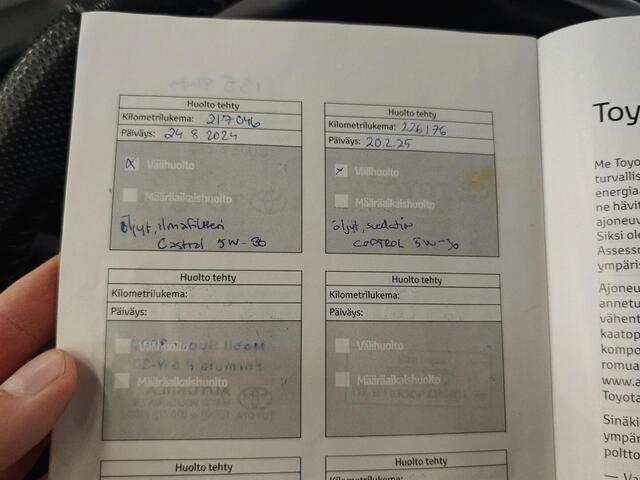 Huolto tehty
Kilometrilukema: 217046
Päiväys: 24.8.2024
x Välihuolto
Määräaikaishuolto
öljyt, ilmafiltteri
Castrol 5W-30
Huolto tehty
Kilometrilukema: 226176
Päiväys: 20.2.25
Välihuolto
Määräaikaishuolto
öljyt, suodatin
CASTROL 5W-30
Huolto tehty
Kilometrilukema:
Päiväys:
Välihuolto
Määräaikaishuolto
Huolto tehty
Kilometrilukema:
Päiväys:
Välihuolto
Määräaikaishuolto
Huolto tehty
Huolto tehty
Kilometrilukema:
Toy
Me Toyo
turvallis
energiaa
ne hävit
ajoneuv
Siksi ole
Assessm
ympäris
Ajoneu
annetu
vähent
kaatop
kompo
romua
www.a
Toyota
Sinäki
ympär
poltto
— Va